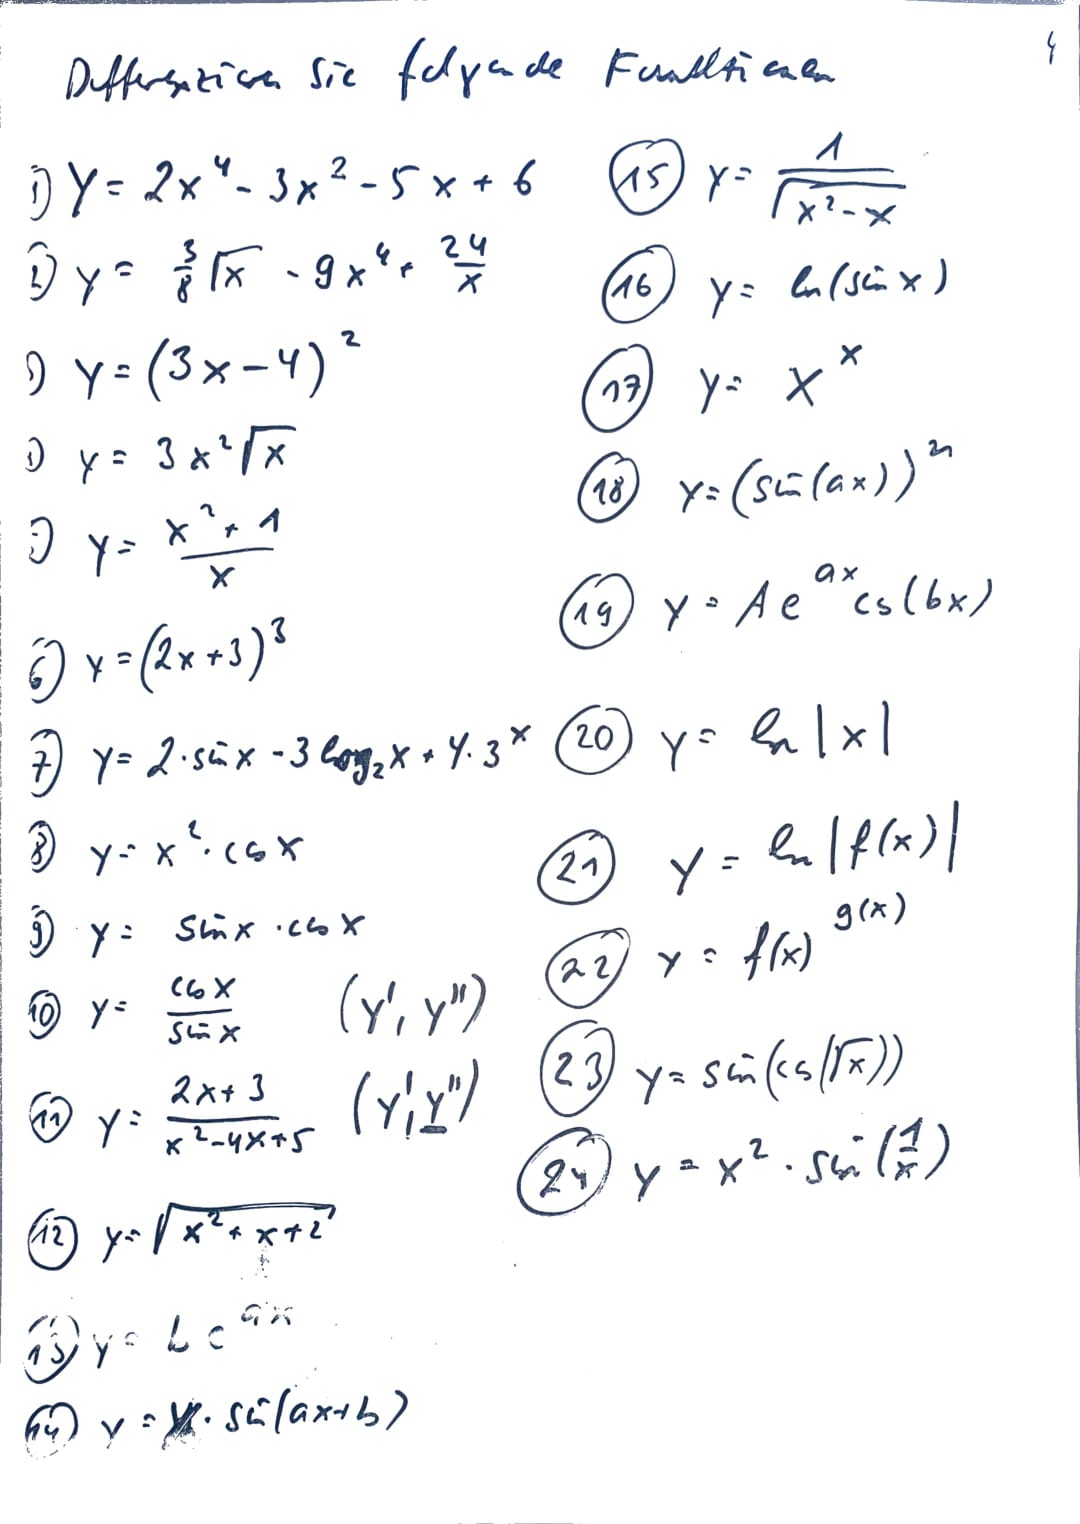 Differenzieren Sie folgende Funktionen
1) y = 2x⁴ - 3x² - 5x + 6
2) y = 3/8 √x - 9x⁴ + 24/x
) y = (3x-4)²
) y = 3x²√x
) y = (x²+1)/x
6) y = (2x+3)³
7) y = 2·sin x - 3 log₂x + 4·3ˣ
8) y = x²·cos x
9) y = sin x · cos x
10) y = cos x / sin x (y', y'')
11) y = (2x+3)/(x²-4x+5) (y', y'')
12) y = √(x²+x+2)
13) y = b e^(ax)
14) y = · sin(ax+b)
15) y = 1/√(x²-x)
16) y = ln(sin x)
17) y = xˣ
18) y = (sin(ax))^(2n)
19) y = A e^(ax) cos(bx)
20) y = ln|x|
21) y = ln|f(x)|
22) y = f(x)^(g(x))
23) y = sin(cos(√x))
24) y = x² · sin(1/x)